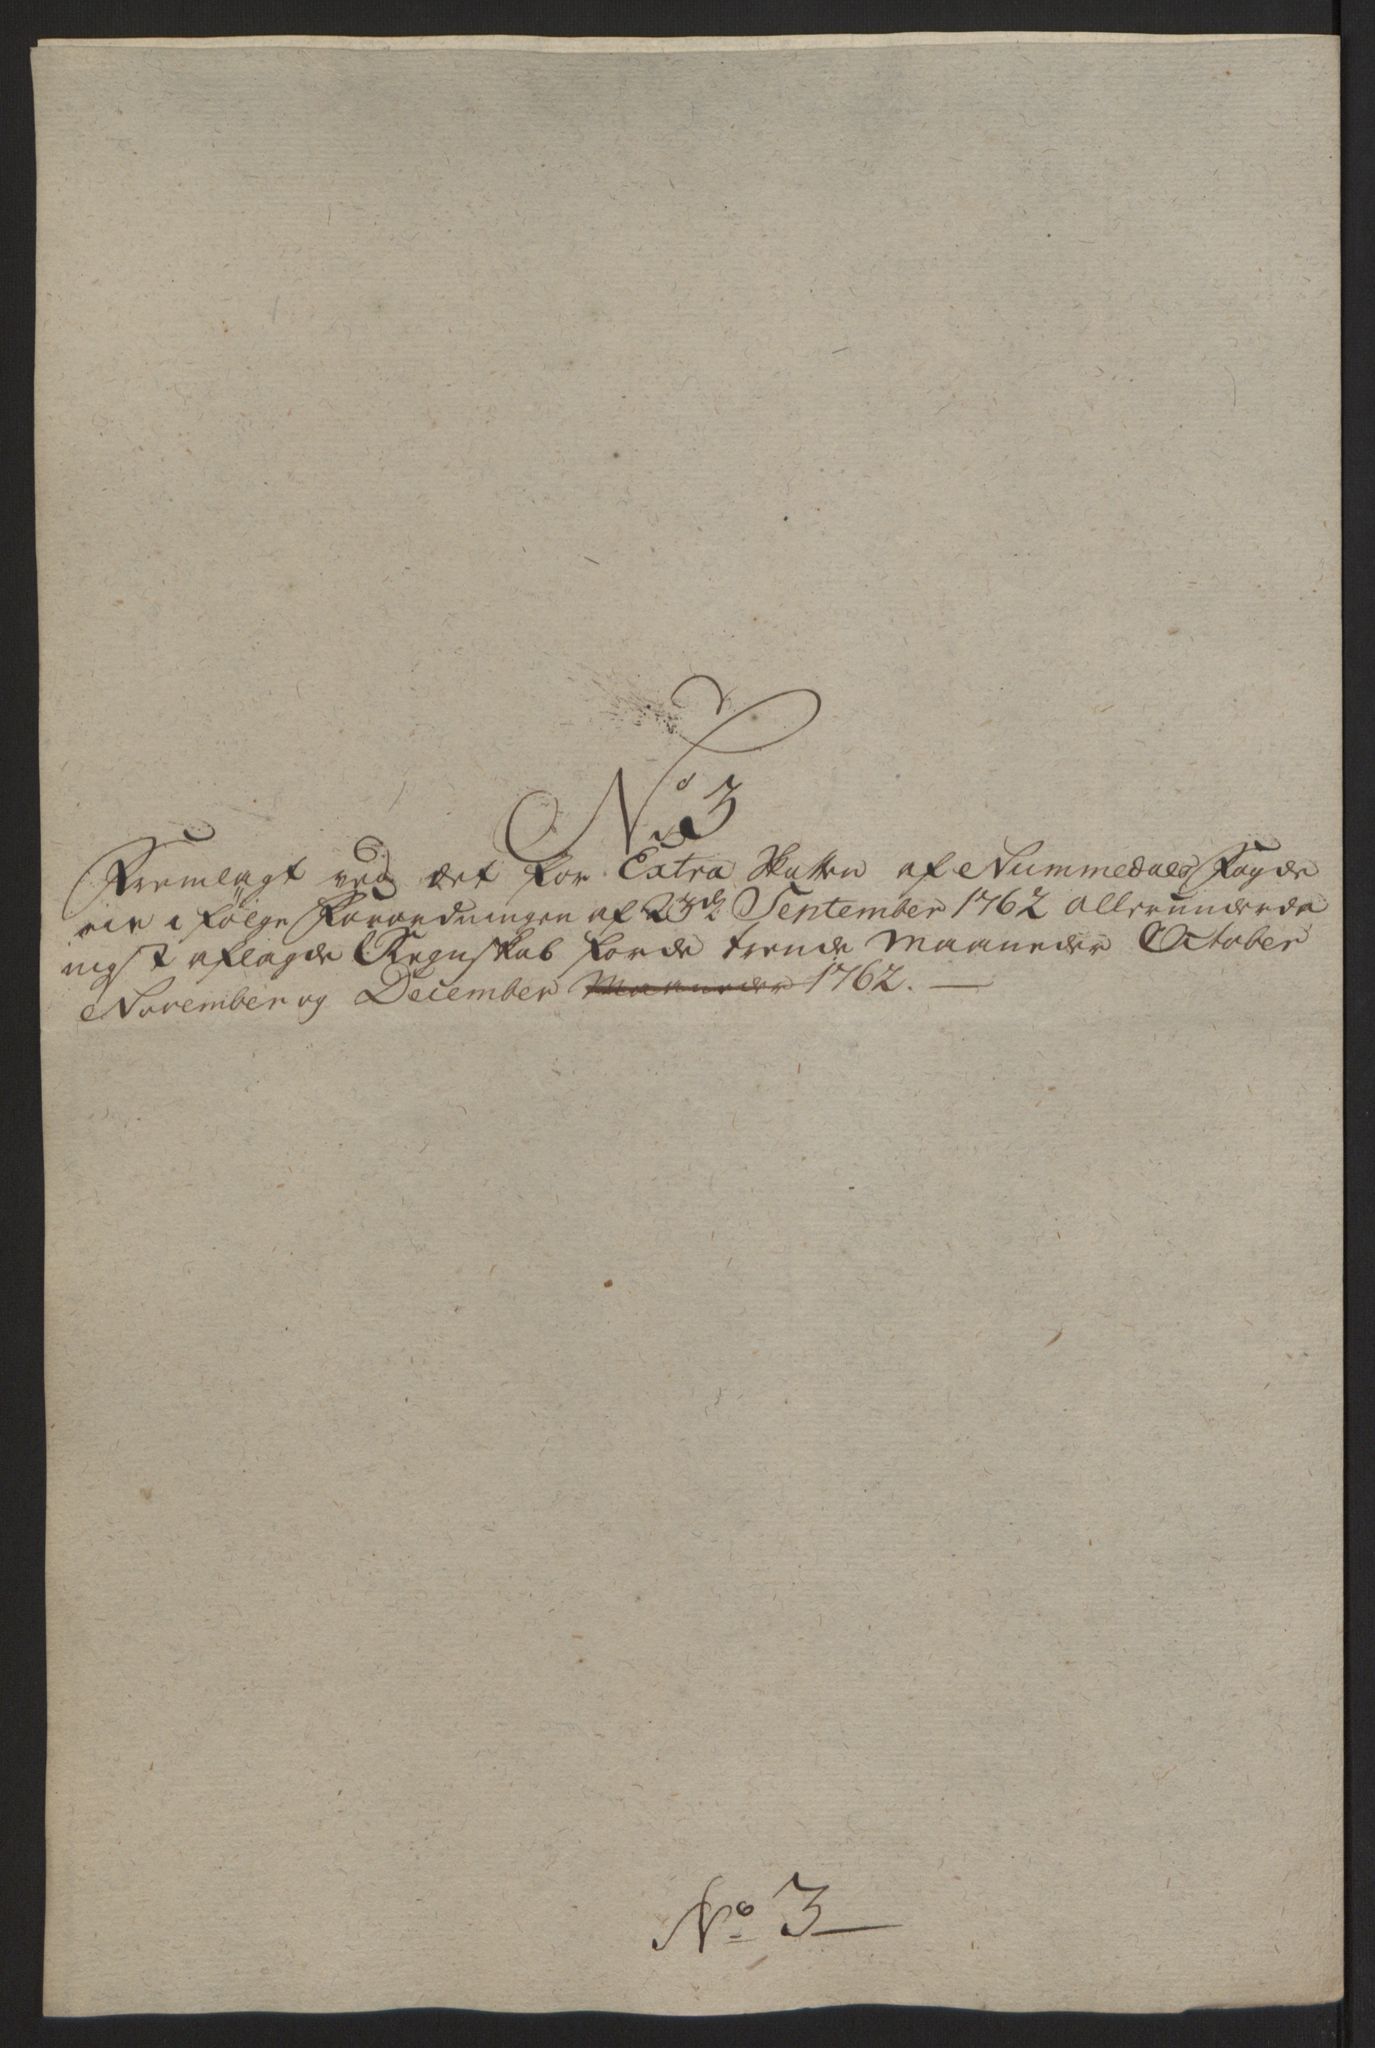 No 3
Fremlagt ved det for Extra Skatten af Nummedals Fogde
rie i følge Forordningen af 23de September 1762 allerunderda
nigst aflagde Regnskab for de trende Maaneder October
November og December Maaneder 1762.
No 3